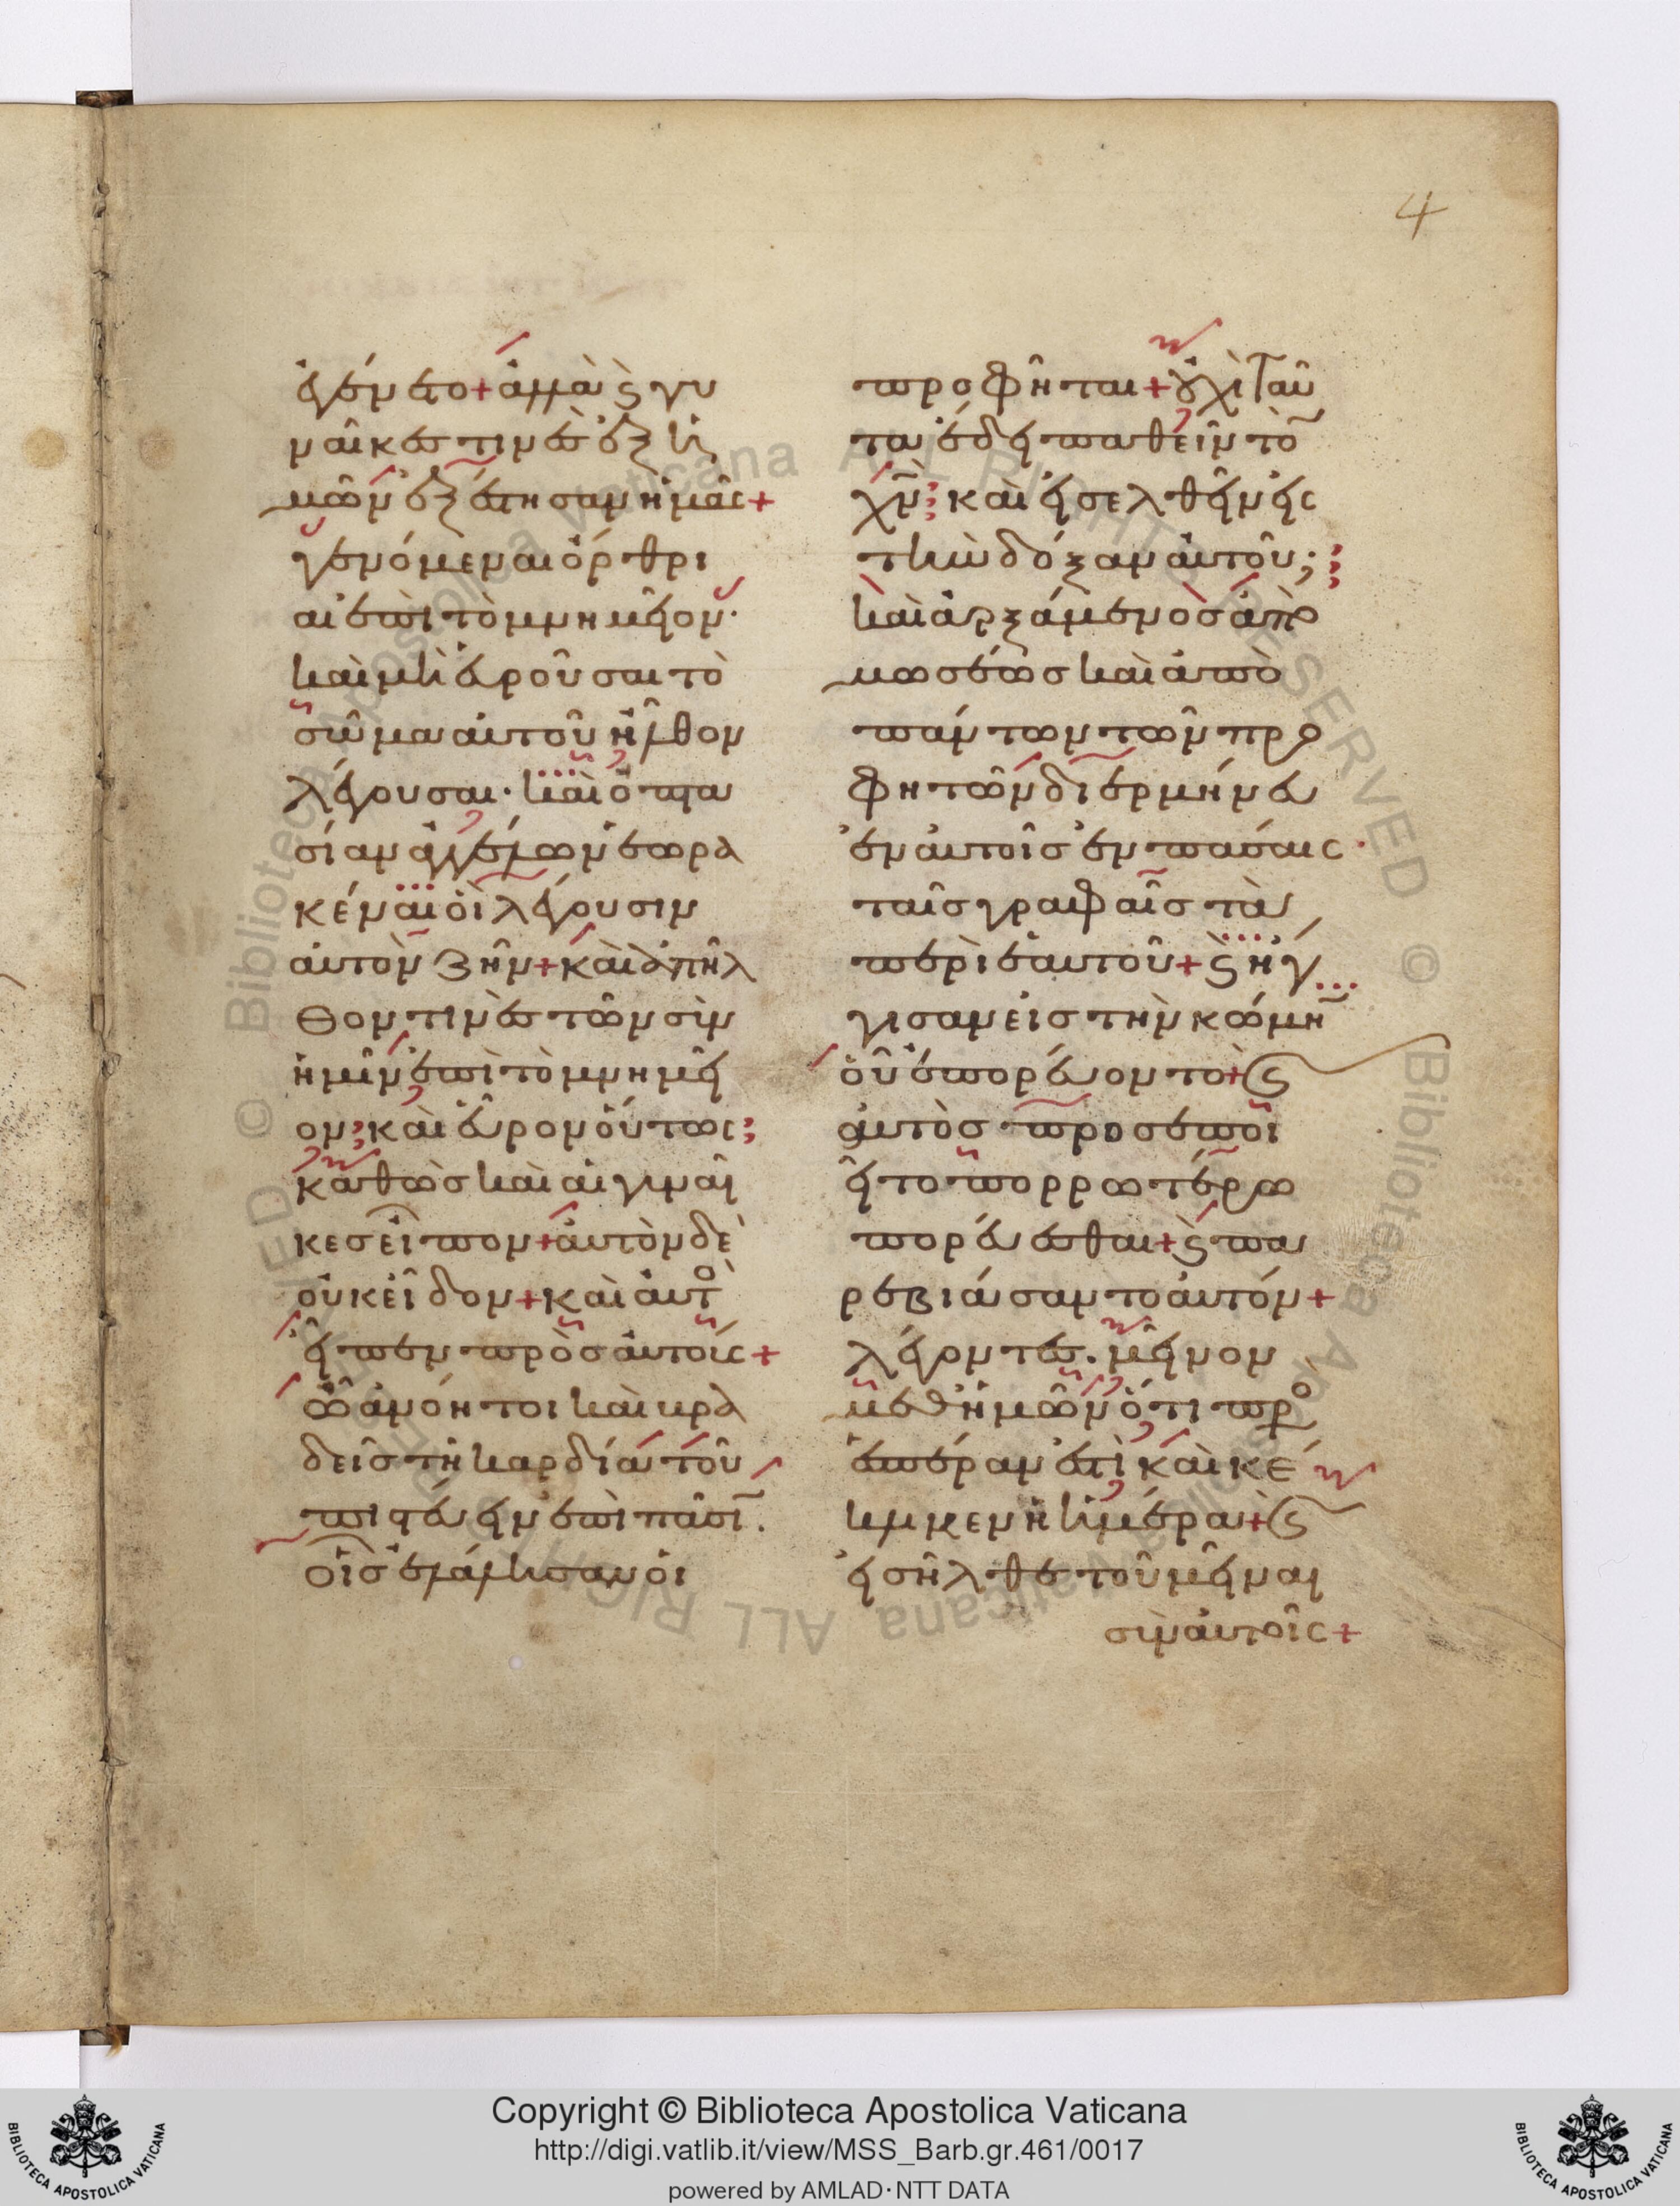 4
ἐγένετο + ἀλλὰ ϛ γυ
ναῖκες τινὲς ἐξ ἡ
μῶν ἐξέστησαν ἡμᾶς +
γενόμεναι ὄρθρι
αι ἐπὶ τὸ μνημεῖον·
καὶ μὴ εὑροῦσαι τὸ
σῶμα αὐτοῦ ἦλθον
λέγουσαι· καὶ ὀπτα
σίαν ἀγγέλων ἑωρα
κέναι οἳ λέγουσιν
αὐτὸν ζῆν + καὶ ἀπῆλ
θον τινὲς τῶν σὺν
ἡμῖν ἐπὶ τὸ μνημεῖ
ον· καὶ εὗρον οὕτως
καθὼς καὶ αἱ γυναῖ
κες εἶπον + αὐτὸν δὲ
οὐκ εἶδον + καὶ αὐτὸ
εἶπεν πρὸς αὐτοίς +
ὦ ἀνόητοι καὶ βρα
δεῖς τῇ καρδία τοῦ
πιστεύειν ἐπὶ πᾶσῖ.
οἷς ἐλάλησαν οἱ
προφῆται + οὐχὶ ταῦ
τα ἔδει παθεῖν τὸ
χν̄· καὶ εἰσελθεῖν εἰς
τὴν δόξαν αὐτοῦ;
καὶ ἀρξάμενος ἀπὸ
μωσέως καὶ ἀπὸ
πάντων τῶν προ
φητῶν διερμήνευ
εν αὐτοῖς ἐν πάσαις
ταῖς γραφαῖς τὰ
περὶ ἑαυτοῦ + ϛ ἤγ
γισαν εἰς τὴν κώμη
οὗ ἐπορεύοντο + ϛ
αὐτὸς προσεποι
εῖτο πορρωτέρω
πορεύεσθαι + ϛ πα
ρεβιάσαντο αὐτόν +
λέγοντες. μεῖνον
μεθ ἡμῶν ὅτι πρὸ
ἑσπέραν ἐστὶ καὶ κέ
κλικεν ἡ ἡμέρα + ϛ
εἰσῆλθε τοῦ μεῖναι
σὺν αὐτοῖς +
© Biblioteca Apostolica Vaticana ALL RIGHTS RESERVED © Biblioteca Apostolica Vaticana ALL RIGHTS RESERVED
Copyright © Biblioteca Apostolica Vaticana
http://digi.vatlib.it/view/MSS_Barb.gr.461/0017
powered by AMLAD·NTT DATA
BIBLIOTECA APOSTOLICA VATICANA
BIBLIOTECA APOSTOLICA VATICANA